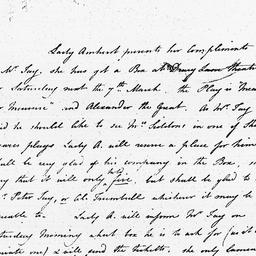 Lady Amherst presents her Complements
Mr. Jay, she has got a Box at Drury Lane Theatre
Saturday next the 7th March, the Play is Mea
Measure" and Alexander the Great. As Mr. Jay
id he should like to see Mrs. Siddons in one of Sha
peares plays Lady A. will reserve a place for him
all be very glad of his company in the Box, s
y that it will only be five, but shall be glad to
Peter Jay, or Col. Trumbull whichever it may be
eeable to— Lady A. will inform Mr Jay on
turday Morning what box he is to ask for (as it
rivate one) & will send the tickets. she only lamen